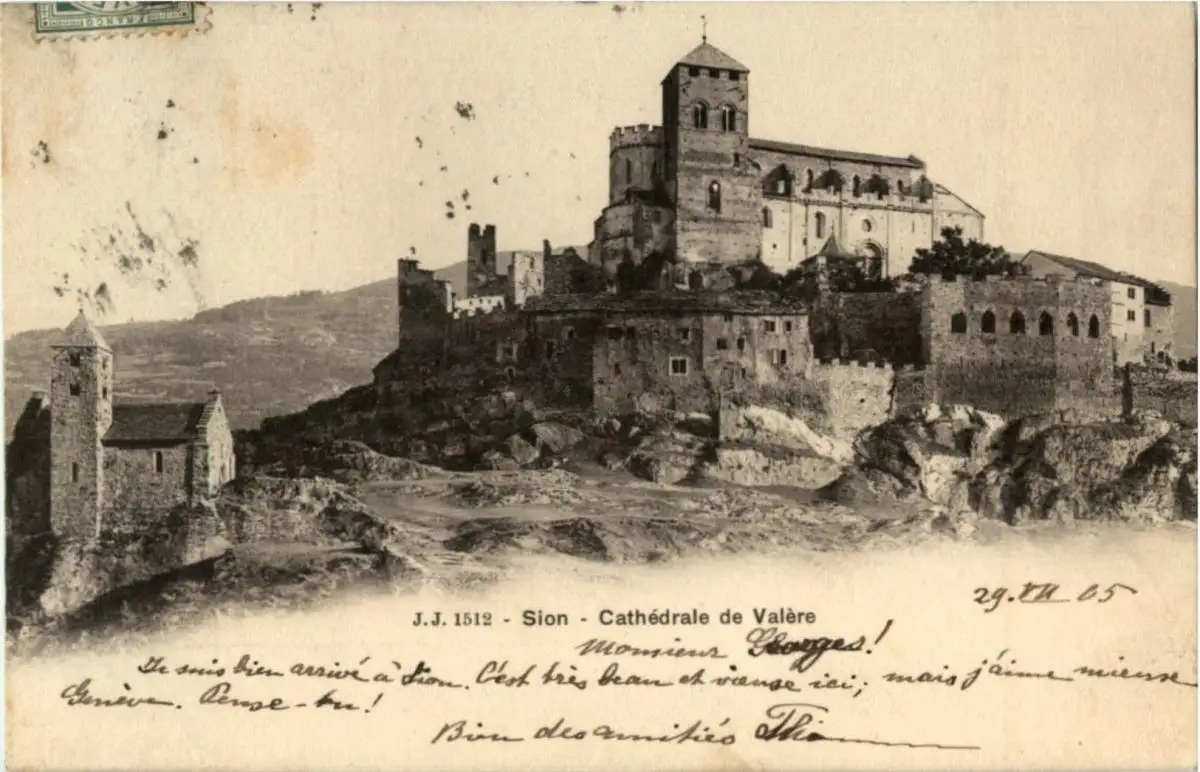 FRANCO
29. VII 05
J.J. 1512 - Sion - Cathédrale de Valère
Monsieur Georges!
Je suis bien arrivé à Sion. C'est très beau et vieux ici; mais j'aime mieuse
Genève. Pense-tu!
Bien des amitiés